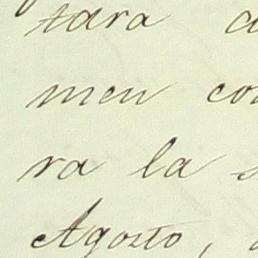 tara a
men con
ra la s
Agosto,